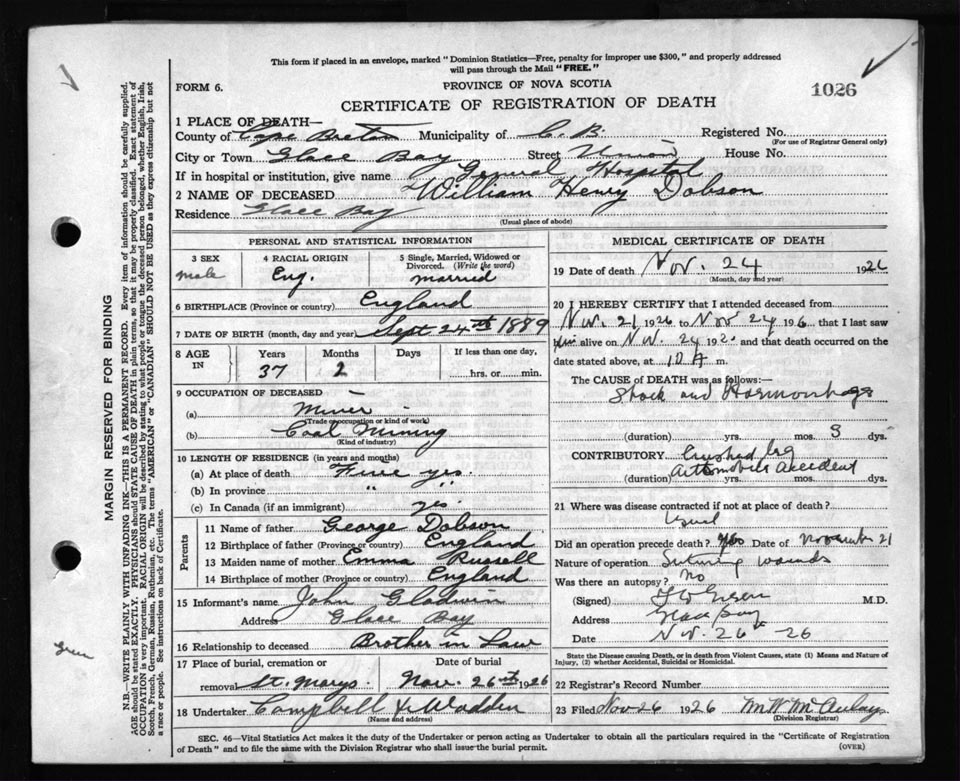 This form if placed in an envelope, marked "Dominion Statistics—Free, penalty for improper use $300," and properly addressed
will pass through the Mail "FREE."
FORM 6.
PROVINCE OF NOVA SCOTIA
1026
CERTIFICATE OF REGISTRATION OF DEATH
1 PLACE OF DEATH—
County of Cape Breton Municipality of C. B. Registered No.
(For use of Registrar General only)
City or Town Glace Bay Street Union House No.
If in hospital or institution, give name General Hospital
2 NAME OF DECEASED William Henry Dobson
Residence Glace Bay
(Usual place of abode)
PERSONAL AND STATISTICAL INFORMATION
3 SEX 4 RACIAL ORIGIN 5 Single, Married, Widowed or
Divorced. (Write the word)
male Eng. married
6 BIRTHPLACE (Province or country) England
7 DATE OF BIRTH (month, day and year) Sept 24th 1889
8 AGE IN Years Months Days If less than one day,
37 2 hrs. or min.
9 OCCUPATION OF DECEASED
(a) Miner
(Trade or occupation or kind of work)
(b) Coal Mining
(Kind of industry)
10 LENGTH OF RESIDENCE (in years and months)
(a) At place of death Five yrs.
(b) In province " "
(c) In Canada (if an immigrant) yes.
Parents
11 Name of father George Dobson
12 Birthplace of father (Province or country) England
13 Maiden name of mother Emma Russell
14 Birthplace of mother (Province or country) England
15 Informant's name John Gladwin
Address Glace Bay
16 Relationship to deceased Brother in Law
17 Place of burial, cremation or Date of burial
removal St. Marys. Nov. 26th 1926
18 Undertaker Campbell & Madden
(Name and address)
MEDICAL CERTIFICATE OF DEATH
19 Date of death Nov. 24 1926
(Month, day and year)
20 I HEREBY CERTIFY that I attended deceased from
Nov. 21 1926 to Nov 24 1926 that I last saw
him alive on Nov. 24 192 and that death occurred on the
date stated above, at 10 A m.
The CAUSE of DEATH was as follows:—
Shock and Hormonhage
(duration) yrs. mos. 3 dys.
CONTRIBUTORY Crushed leg
Automobile accident
(duration) yrs. mos. dys.
21 Where was disease contracted if not at place of death?
Did an operation precede death? Yes Date of November 21
Nature of operation Suturing wounds
Was there an autopsy? No
(Signed) M.D.
Address Glace Bay
Date Nov. 26th -26
State the Disease causing Death, or in death from Violent Causes, state (1) Means and Nature of
Injury, (2) whether Accidental, Suicidal or Homicidal.
22 Registrar's Record Number
23 Filed Nov 26 1926 M W McAulay
(Division Registrar)
SEC. 46—Vital Statistics Act makes it the duty of the Undertaker or person acting as Undertaker to obtain all the particulars required in the "Certificate of Registration
of Death" and to file the same with the Division Registrar who shall issue the burial permit. (OVER)
MARGIN RESERVED FOR BINDING
N.B.—WRITE PLAINLY WITH UNFADING INK—THIS IS A PERMANENT RECORD. Every item of information should be carefully supplied.
AGE should be stated EXACTLY. PHYSICIANS should STATE CAUSE OF DEATH in plain terms, so that it may be properly classified. Exact statement of
OCCUPATION is very important. RACIAL ORIGIN will be described by stating to what people or tongue the deceased person belonged, whether English, Irish,
Scotch, French, German, Russian, Ruthenian, etc. The terms "AMERICAN" or "CANADIAN" SHOULD NOT BE USED as they express citizenship but not
a race or people. See instructions on back of Certificate.